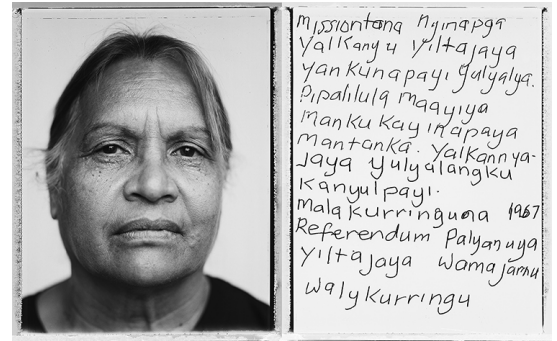 missiontana nyinapga
yalkanyu yiltajaya
yankunapayi gulyalya.
Pipalilula maayiya
manku kayinapaya
mantanka. yalkannya-
jaya yulyulangku
kanyulpayi.
mala kurringuna 1967
Referendum Palyanuya
yiltajaya wamajarnu
walykurringu